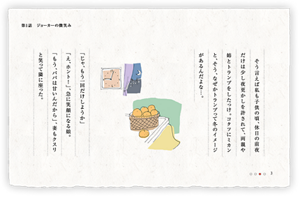 第1話 ジョーカーの微笑み
そう言えば私も子供の頃、休日の前夜
だけは少し夜更かしを許されて、両親や
姉とトランプをしたっけ。コタツにミカン
と、そう、なぜかトランプって冬のイメージ
があるんだよなー。
「じゃ、もう一回だけしようか」
「え、ホント!」、急に笑顔になる娘。
「もう、パパは甘いんだから」、妻もクスリ
と笑って輪に座った。